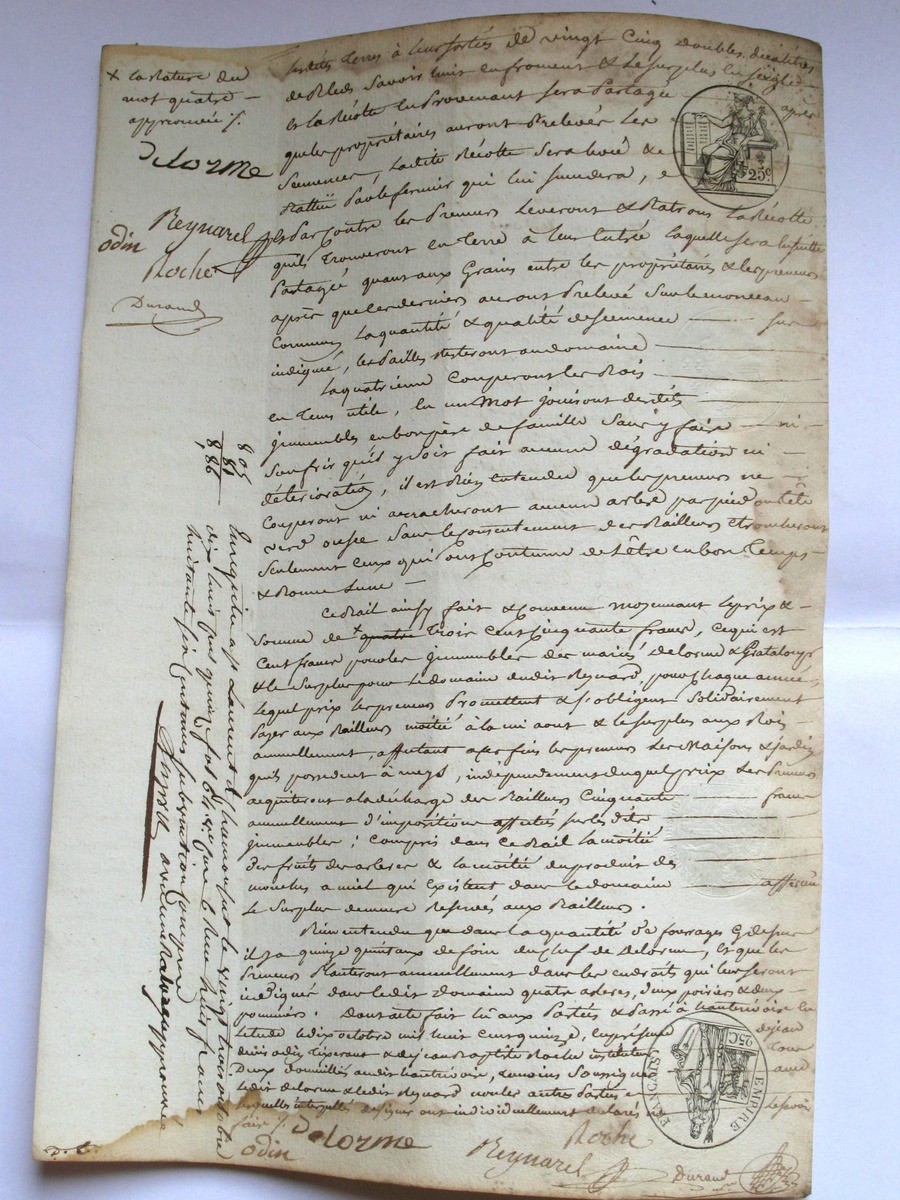 x la rature du
mot quatre
approuvée /.
Delorme
Reynard
odin
Roche
Durand
lesdites terres à leur sorties de vingt cinq doubles décalitres
de Bleds Savoir huit en froment & le surplus en seigle
et la Récolte en Provenant sera Partagée après
que les propriétaires auront Prelevés les
Semences, Ladite Récolte Sera &
Battue Par le fermier qui lui succedera,
et Par Contre les Preneurs Leveront & Batrons La Récolte
qu'ils Trouveront en Terre à leur Entrée laquelle sera ensuite
Partagée quant aux Grains entre les propriétaires & les preneurs
après que les derniers auront Prelevé Sur le monceau
Commun La quantité & qualité de semence sus
indiqué, les Pailles resteront au domaine
La quatrieme Couperont les Bois
en Tems utile, En un Mot jouiront desdits
jmmeubles en bon père de famille Sans y faire ni
Souffrir qu'il y Soit fait aucune dégradation ni
déterioration, il est Bien entendu que les preneurs ne
Couperont ni arracheront aucun arbre par pied ou tête
verd ou sec Sans le Consentement des Bailleurs
Seulement Ceux qui ont Coutume de l'être en bon Temps
& Bonne Lune
Ce Bail ainsy fait & Convenu moyennant Le prix &
Somme de x quatre Trois Cent Cinquante francs, Ce qui est
Cent francs pour les jmmeubles des mariés Delorme & Grataloup
& le Surplus pour Le domaine dudit Reynard, pour Chaque année
Lequel prix les preneurs Promettent & s'obligent Solidairement
Payer aux Bailleurs moitié à la mi aout & le surplus aux Rois
annuellement, affectant a cet fins les preneurs Les Maisons & jardin
qu'ils possedent à meys, indépendamment duquel prix Les Preneurs
acquiteront à la décharge des Bailleurs Cinquante francs
annuellement d'impositions affectés sur lesdits
jmmeubles; Compris dans Ce Bail la moitié
Des fruits des arbres & la moitié du produit des
mouches a miel qui Existent dans le domaine
Le Surplus demeure Reservés aux Bailleurs.
Bien entendu que dans la quantité de fourrages Cy dessus
il y a quinze quintaux de foin du Chef de Delorme, Et que les
Preneurs Planteront annuellement dans les endroits qui leur Seront
indiqué dans ledit Domaine quatre arbres, deux poiriers & deux
pommiers. Dont acte fait lu aux Parties & Passé à hauterivoire En
l'étude Le dix octobre mil huit Cent quinze, En présence de jean
denis odin & de jean Baptiste Roche instituteur Tous
Deux domiciliés audit hauterivoire, temoins Soussignés avec
ledit delorme & ledit Reynard non les autres Parties
lesquelles de signer ont individuellement declarés ne Le savoir
faire /.
Delorme
Roche
odin
Reynard
Durand
D. C.
805
81
886
Enregistré à St Laurent de Chamousset le vingt trois octobre
dix huit cent quinze fo 64
25c
25C
EMPIRE
FRANÇAIS